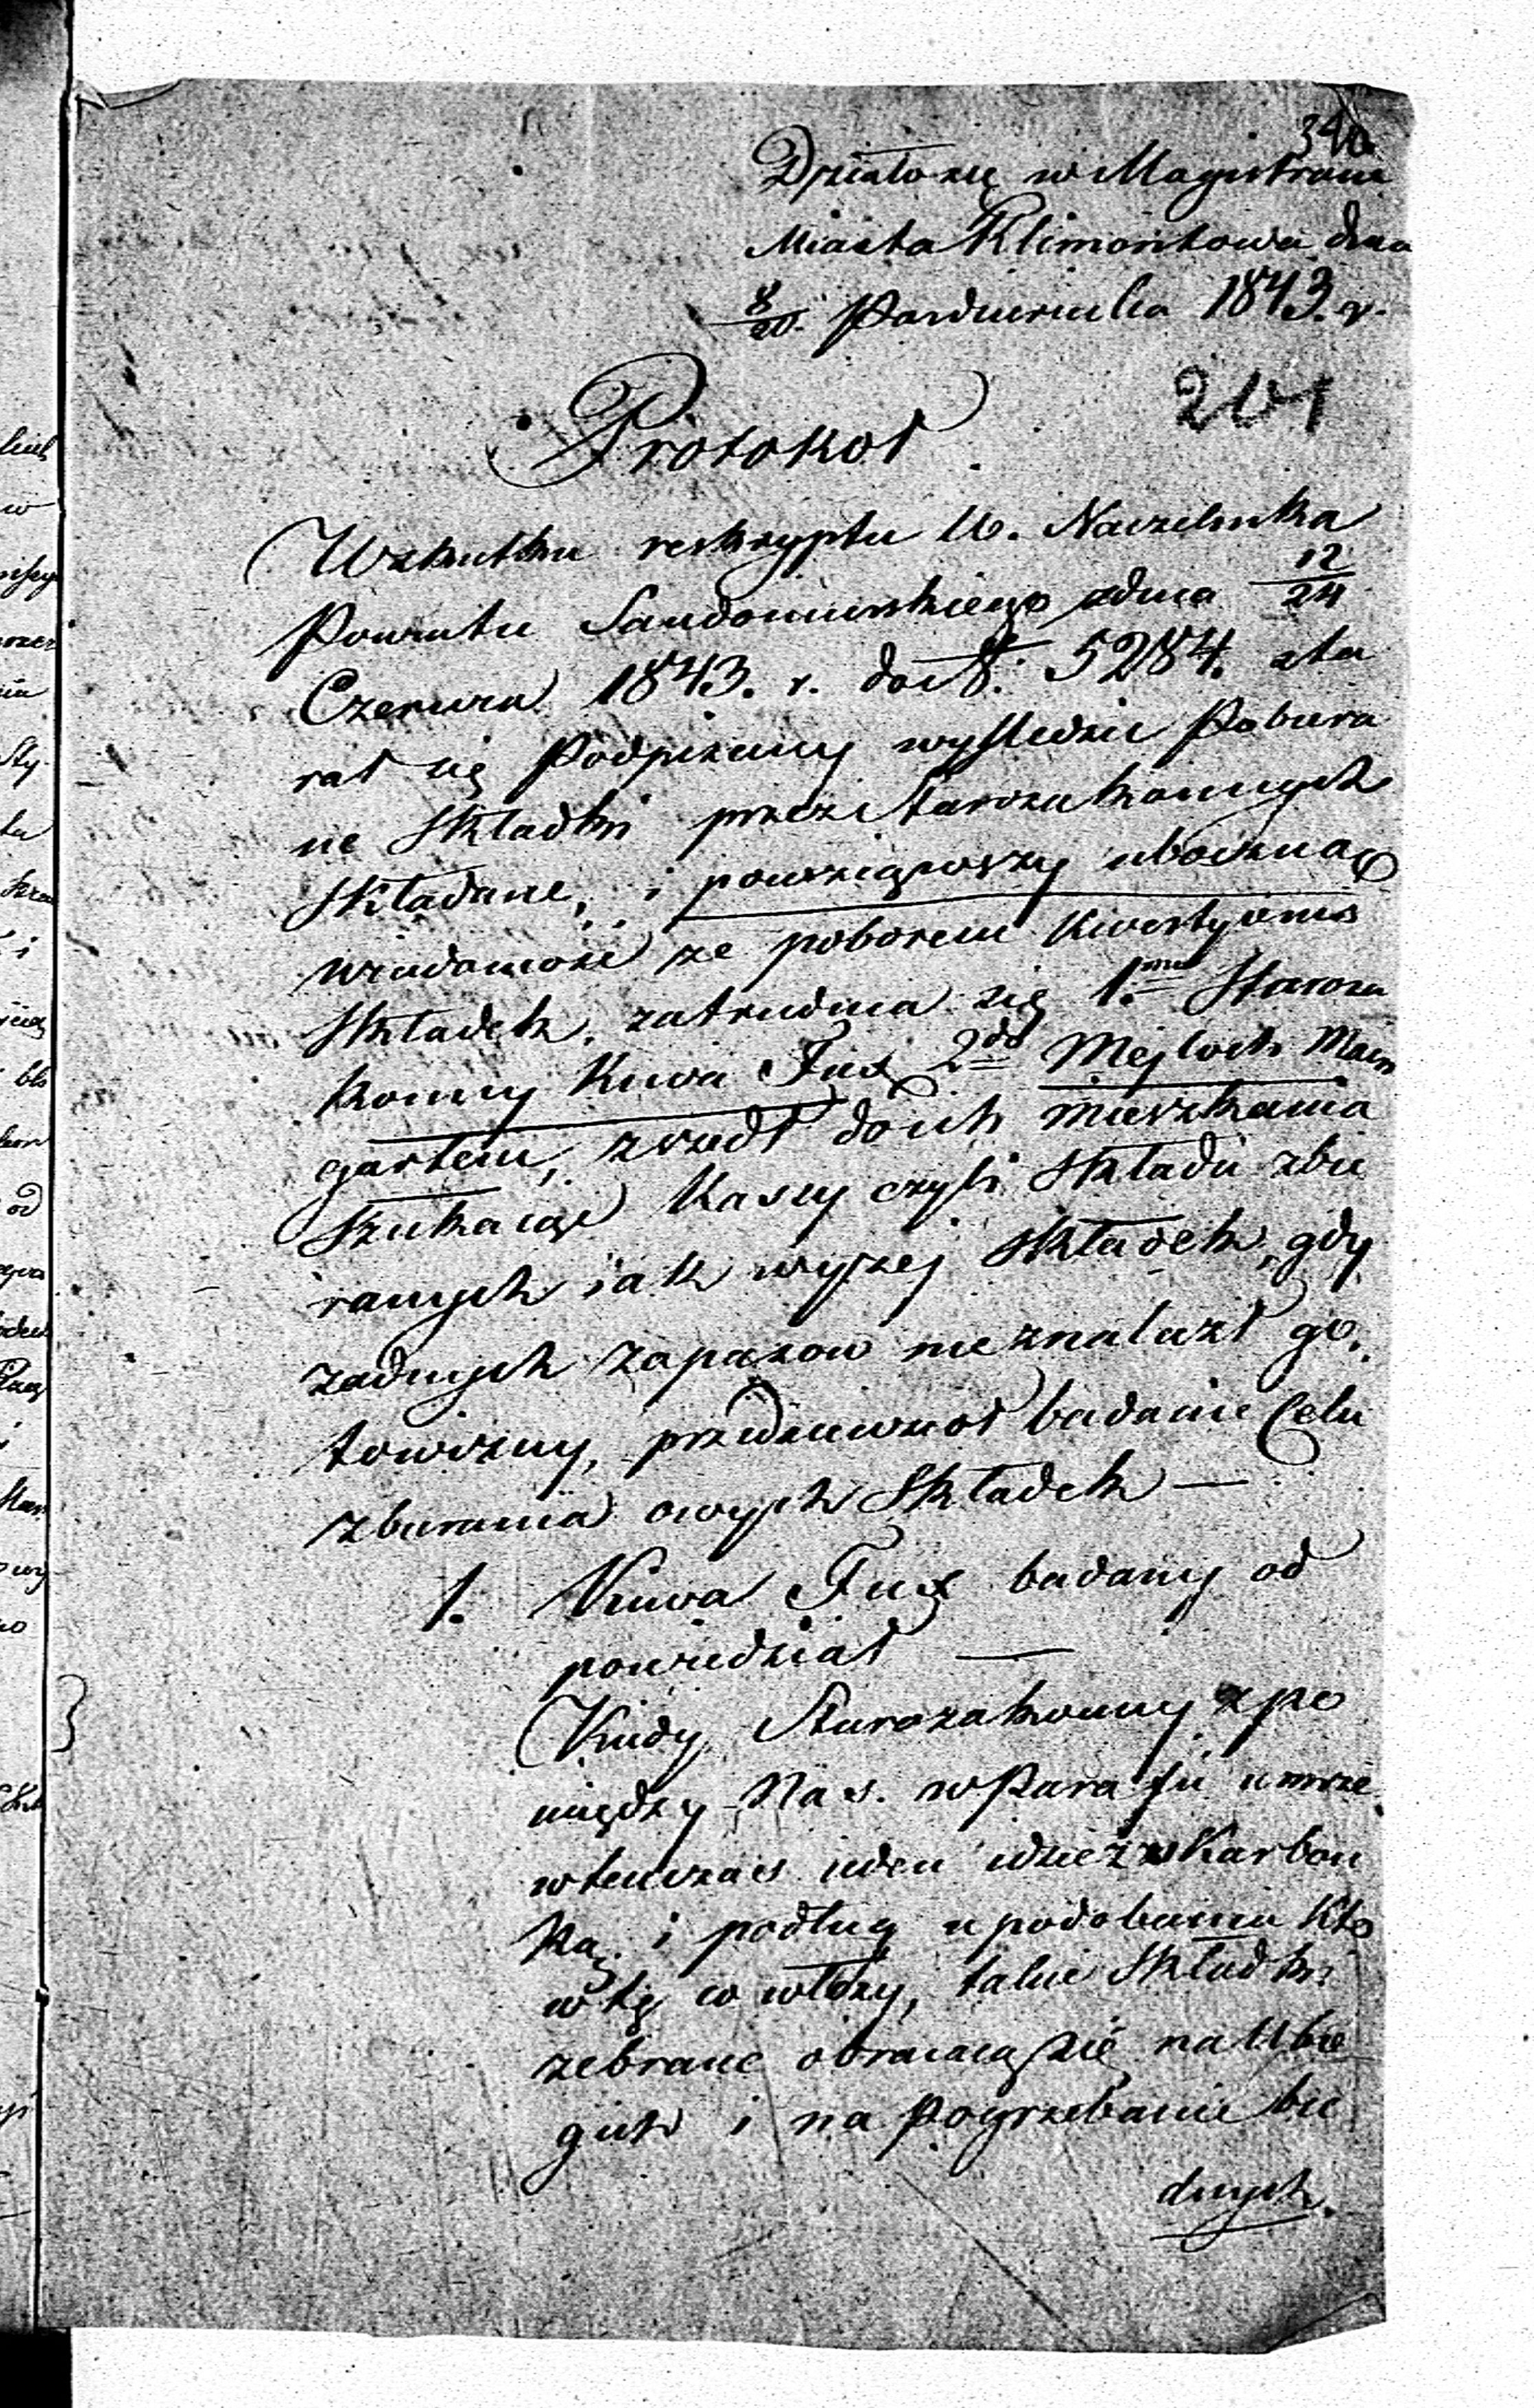 340
Działo się w Magistracie
Miasta Klimontowa dnia
8/20. Października 1843. r.
201
Protokoł
Wskutku reskryptu W. Naczelnika
Powiatu Sandomierskiego zdnia 12/24
Czerwca 1843. r. do N. 5284. sta
rał się Podpisany wyśledzić Pobiera
ne Składki przez Starozakonnych
Składane, i powziąwszy uboczną
wiadomość że poborem kwestyonow
Składek, zatrudnia się 1.mo Staroza
konny Kiwa Fux 2do Mejloch Main
gartem, zszedł do ich mieszkania
Szukaiąc Kassy czyli Składu zbie
ranych iak wyżej Składek, gdy
żadnych zapasow nie znalazł go
towizny, przedsiewzioł badanie Celu
zbierania owych Składek —
1. Kiwa Fux badany od
powiedział —
Kiedy Starozakonny z po
między Nas. w Parafii umrze
wtenczas ieden idzie z Karbon
ką i podług upodobania kto
w tę co włoży, takie Składki
zebrane obracaią się na Ubo
gich i na Pogrzebanie bie
dnych.